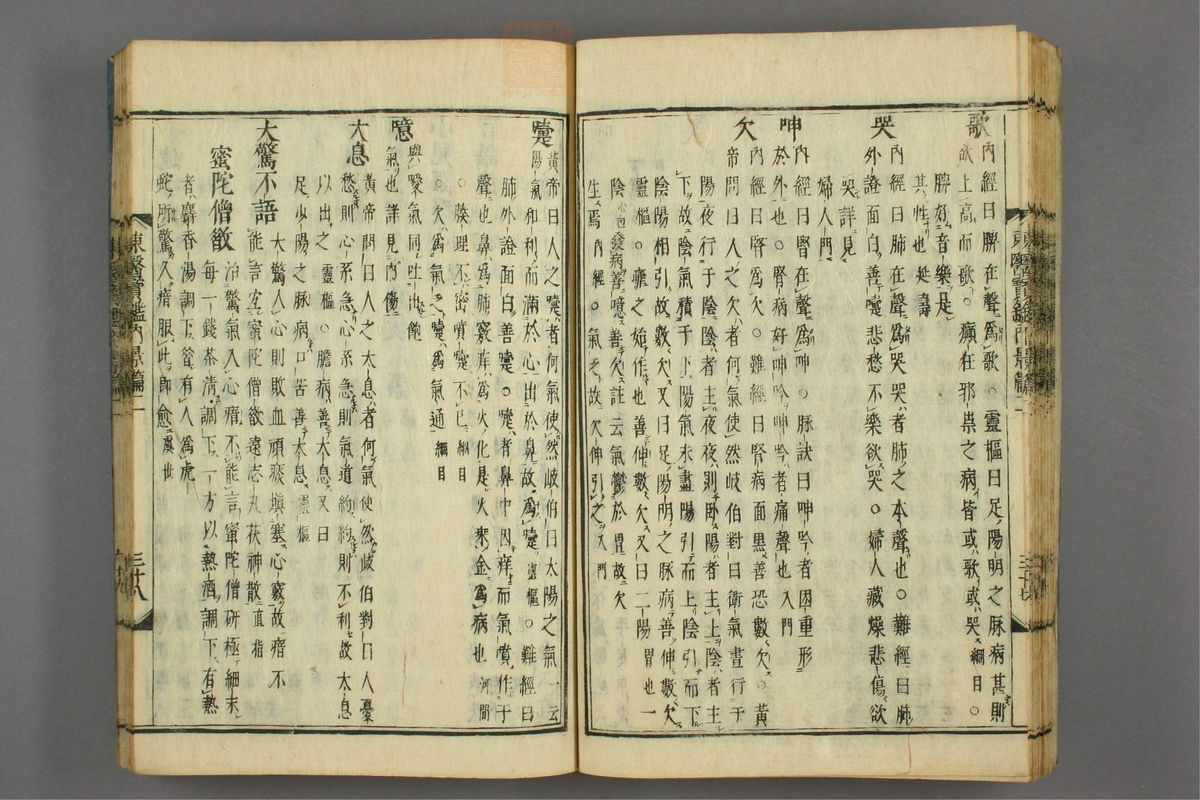 歌
內經曰脾在聲爲歌○靈樞曰足陽明之脉病甚則
欲上高而歌○癲狂邪祟之病皆或歌或哭綱目○
脾好音樂是
其性也延壽
哭
內經曰肺在聲爲哭哭者肺之本聲也○難經曰肺
外證面白善嚔悲愁不樂欲哭○婦人藏燥悲傷欲
哭詳見
婦人門
呻
內經曰腎在聲爲呻○脉訣曰呻吟者因重形
於外也○腎病好呻吟呻吟者痛聲也入門
欠
內經曰腎爲欠○難經曰腎病面黑善恐數欠○黃
帝問曰人之欠者何氣使然岐伯對曰衛氣晝行于
陽夜行于陰陰者主夜夜則臥陽者主上陰者主
下故陰氣積于下陽氣未盡陽引而上陰引而下
陰陽相引故數欠又曰足陽明之脉病善伸數欠
靈樞○瘧之始作也善伸數欠又曰二陽胃也一
陰心包發病善噫善欠註云氣鬱於胃故欠
生焉內經○氣乏故欠伸引之入門
嚔
黃帝曰人之嚔者何氣使然岐伯曰太陽之氣一云
陽氣和利而滿於心出於鼻故爲嚔靈樞○難經曰
肺外證面白善嚔○嚔者鼻中因痒而氣噴作于
聲也鼻爲肺竅痒爲火化是火乘金爲病也河間
○腠理不密噴嚔不已綱目
○欠爲氣乏嚔爲氣通綱目
噫
與噯氣同吐出飽
氣也詳見內傷
大息
黃帝問曰人之太息者何氣使然岐伯對曰人憂
愁則心系急心系急則氣道約約則不利故太息
以出之靈樞○膽病善太息又曰
足少陽之脉病口苦善太息靈樞
大驚不語
大驚入心則敗血頑痰塡塞心竅故瘖不
能言宜蜜陀僧散遠志丸茯神散直指
蜜陀僧散
治驚氣入心瘖不能言蜜陀僧硏極細末
每一錢茶淸調下一方以熱酒調下有熱
者麝香湯調下昔有人爲虎
蛇所驚久瘖服此卽愈虞世
東醫寶鑑內景篇二
三十七
東醫寶鑑內景篇二
三十八